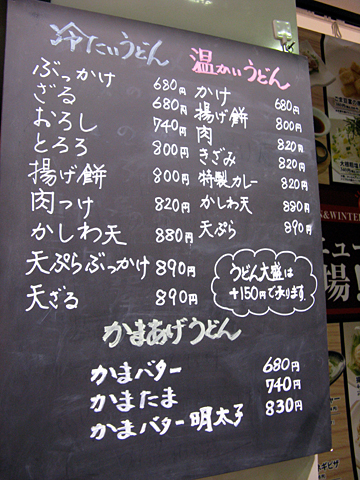 冷たいうどん
ぶっかけ 680円
ざる 680円
おろし 740円
とろろ 800円
揚げ餅 800円
肉つけ 820円
かしわ天 880円
天ぷらぶっかけ 890円
天ざる 890円
温かいうどん
かけ 680円
揚げ餅 800円
肉 820円
きざみ 820円
特製カレー 820円
かしわ天 880円
天ぷら 890円
うどん大盛は
+150円で承ります。
かまあげうどん
かまバター 680円
かまたま 740円
かまバター明太子 830円
&WINTER
ニュー
場!